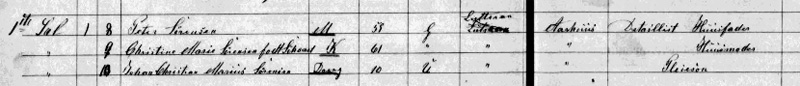 1ste Sal 1 8 Peter Sörensen M 53 G Luthersan Aarhuus Detaillist Huusfader
" 9 Christine Marie Sörensen født K 61 " " " Huusmoder
" 10 Johan Christian Marius Sörensen Dreng 10 U " " Pleiesøn